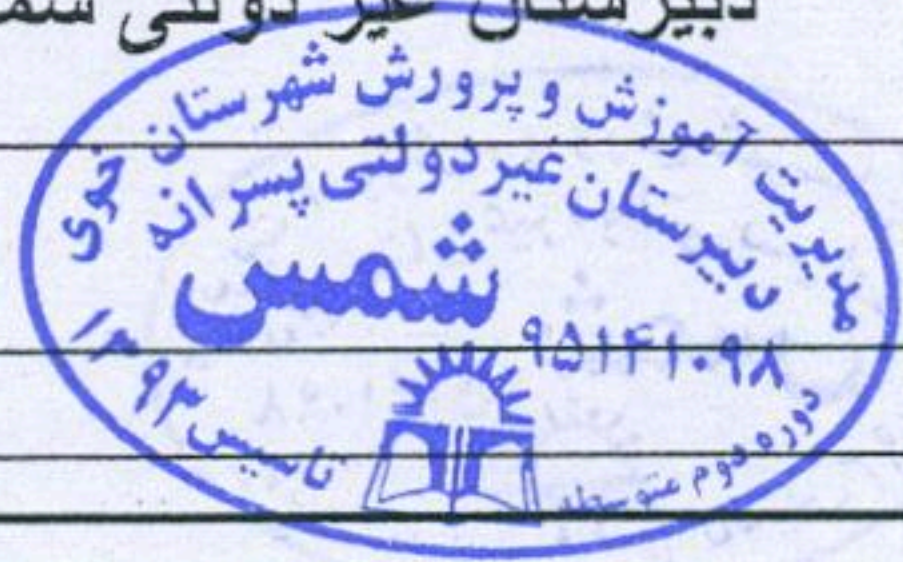 دبیرستان غیر دولتی شمس
مدیریت آموزش و پرورش شهرستان خوی
دبیرستان غیر دولتی پسرانه
شمس
۹۵۱۴۱۰۹۸
تاسیس ۱۳۹۳
دوره دوم متوسطه